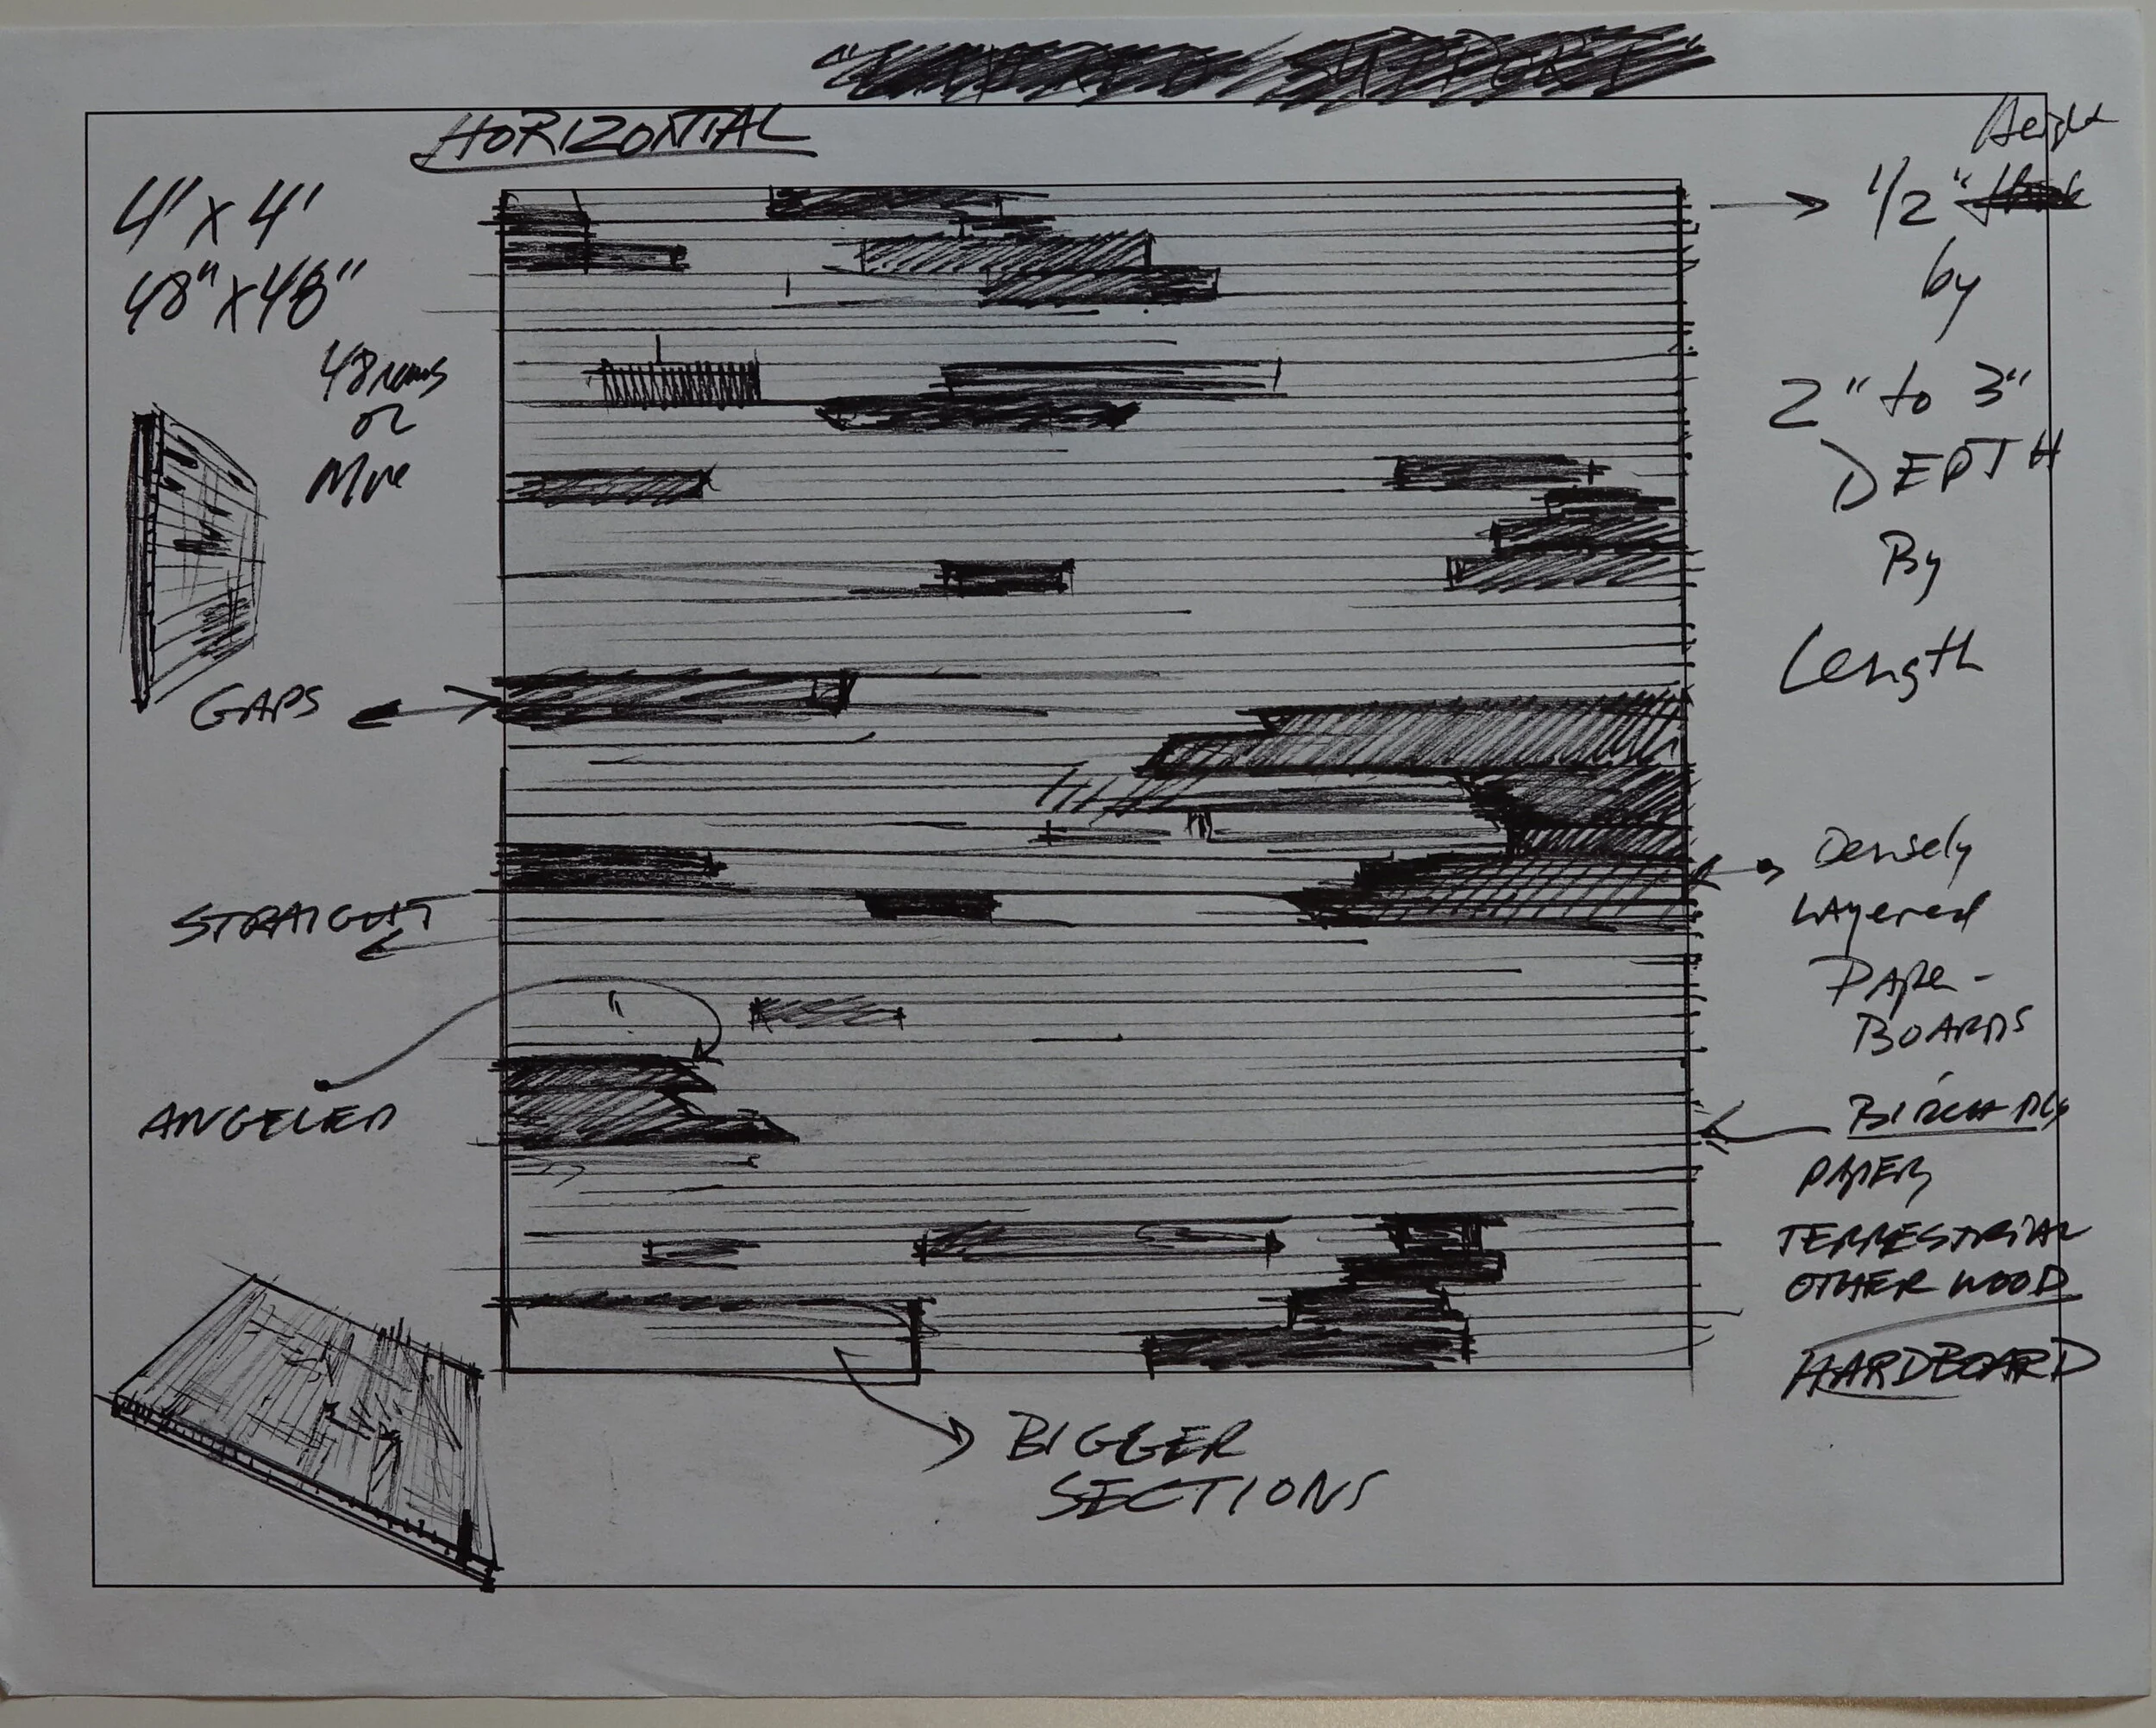 HORIZONTIAL
4' x 4'
48" x 48"
48 rows
or
More
GAPS
STRAIGHT
ANGELED
Height
1/2"
by
2" to 3"
DEPTH
By
Length
Densely
Layered
Paper-
BOARDS
BIRCH PLY
PAPER
TERRESTRIAL
OTHER WOOD
HARDBOARD
BIGGER
SECTIONS